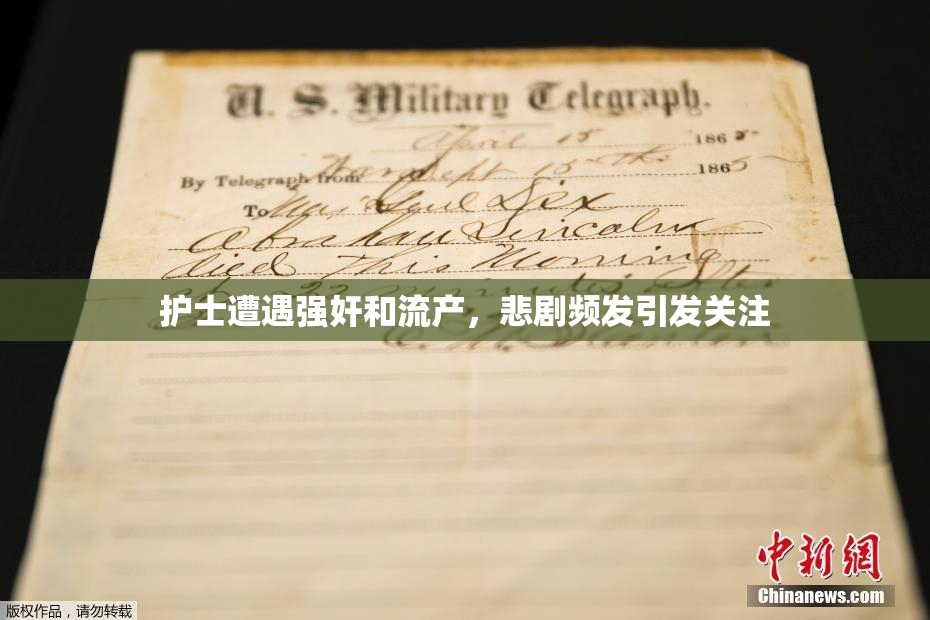 U. S. Military Telegraph.
April 15 1865
By Telegraph from War Dept 15th 1865
To Maj Genl Dix
Abraham Lincoln
died This Morning
at 22 minutes after
护士遭遇强奸和流产，悲剧频发引发关注
E. M. Stanton
中新网
Chinanews.com
版权作品，请勿转载